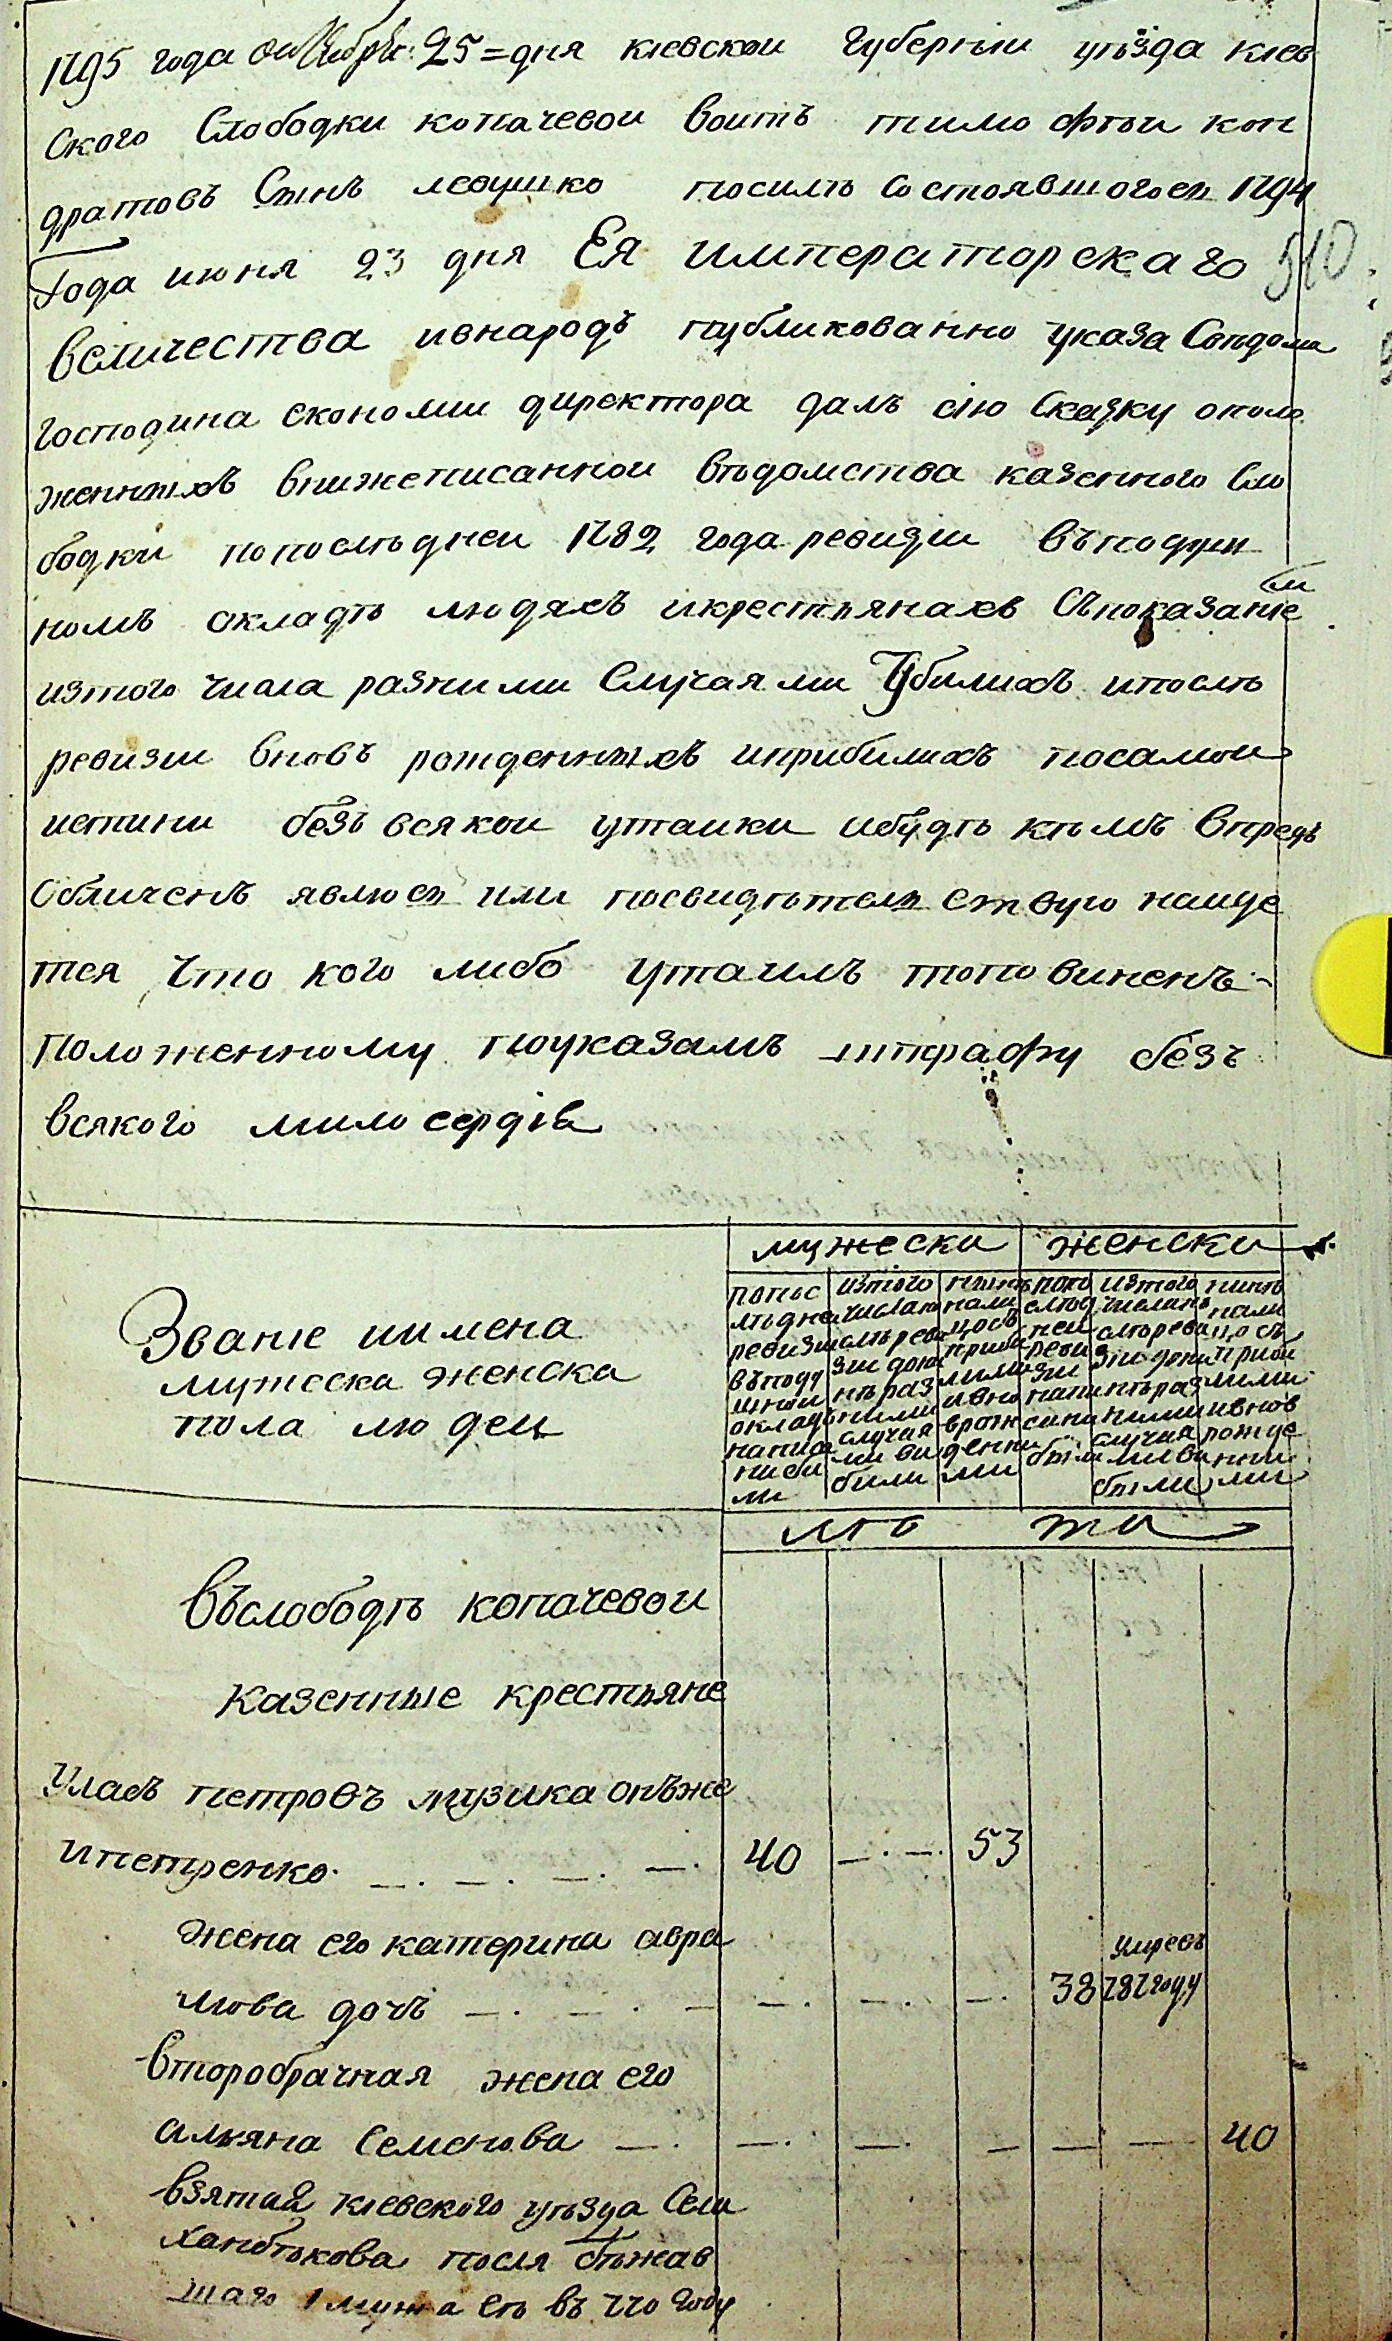 1795 года октября: 25=дня киевскои губерніи уѣзда киев
ского Слободки копачевои воитъ тимофѣи кон
дратовъ Сынъ левушко посилѣ Состоявшогося 1794
Года июня 23 дня Ея императорскаго
510
величества ивнародъ публикованно указа
господина економии директора далъ сію Сказку ополо
женныхъ внижеписаннои вѣдомства казенного Сло
бодки попослѣднеи 1782 года ревизіи въподуш
номъ окладѣ людяхъ икрестьянахъ Съпоказание
мъ
изтого числа разними Случаями Убилихъ ипослѣ
ревизии вновъ рожденныхъ иприбилихъ посамои
истини безъ всякои утаики ибудѣ кѣмъ впредъ
Обличенъ явлюся или посвидѣтельствую наиде
тся что кого либо утаилъ топовиненъ
положенному поуказамъ штрафу безъ
всякого милосердія
мужески женски
Званіе иимена
мужеска женска
пола людеи
попос
лѣдне
ревизии
въподу
шнои
окладъ
написа
ниби
ли
изтого
числапо
слѣреви
зии дони
нѣ раз
ними
случая
ми ви
били
нынѣ
нали
цосъ
приби
лими
ивно
врож
денни
ми
попо
слѣд
неи
реви
зии
напи
сани
были
изтого
числапо
слѣреви
зіи дони
нѣраз
ними
случая
миви
были
нинѣ
нали
цосъ
приби
лими
ивнов
рожде
нни
ми
лѣ та
въслободѣ копачевои
казенные крестьяне
Уласъ петровъ музика онъже
ипетренко 40 53
жена его катерина авра
мова дочъ 38 умре въ 787 году
второбрачная жена его
алияна Семенова 40
взятая киевского уѣзда Села
ханбѣкова посля бѣжав
шаго 1 мужа въ 770 году